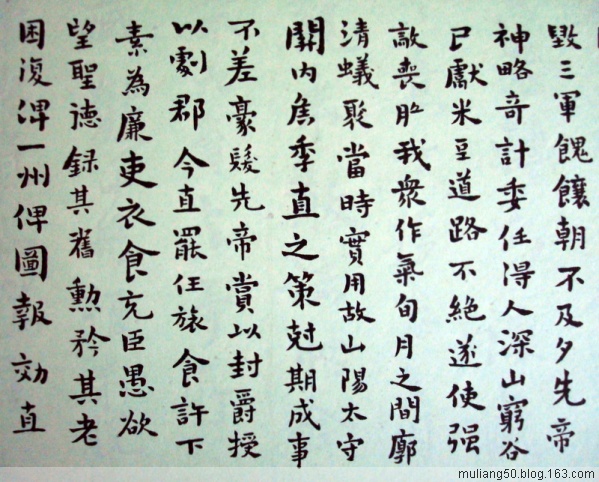 毀三軍餽饟朝不及夕先帝
神略奇計委任得人深山窮谷
民獻米豆道路不絕遂使强
敵喪胆我衆作氣旬月之間廓
清蟻聚當時實用故山陽太守
關內侯季直之策尅期成事
不差豪髮先帝賞以封爵授
以劇郡今直罷任旅食許下
素為廉吏衣食充臣愚欲
望聖德録其舊勳矜其老
困復俾一州俾圖報効直
muliang50.blog.163.com